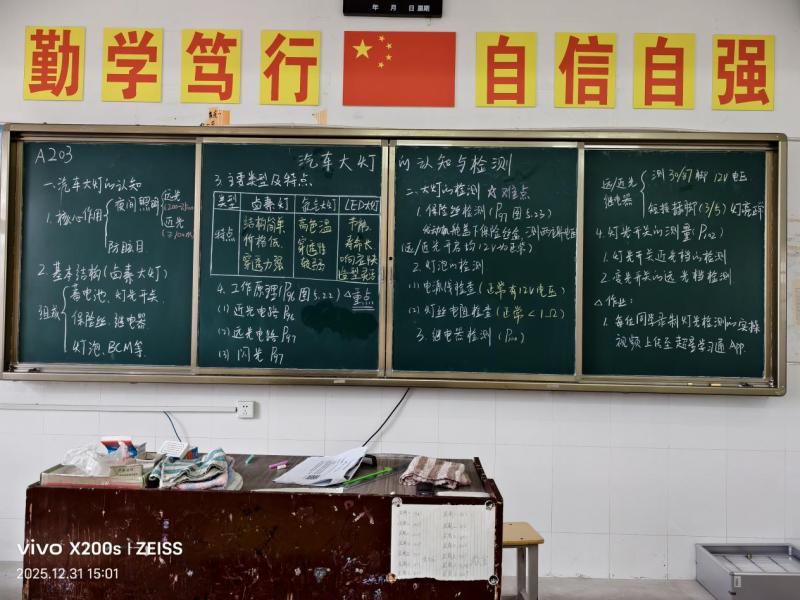 年 月 日 星期
勤学笃行
自信自强
A203
汽车大灯的认知与检测
一.汽车大灯的认知
1.核心作用
夜间照明
远光
近光
防眩目
2.基本结构(卤素大灯)
组成
蓄电池、灯光开关、
保险丝、继电器
灯泡、BCM等.
3.主要类型及特点
类型 卤素灯 氙气灯 LED大灯
特点
结构简单
价格低、
穿透力强
高色温
穿透性
较弱
节能
寿命长
响应较快
造型灵活
4.工作原理(P96图5.22) △重点
(1)近光电路 P97
(2)远光电路 P97
(3)闪光 P97
二.大灯的检测 ☆难点
1.保险丝检测(P97图5.23)
远/近光开启均12V为正常)
2.灯泡的检测
(1)电源线检查(正常有12V电压)
(2)灯丝电阻检查(正常<1Ω)
3.继电器检测
远/近光
继电器
12V电压
(3/5)灯亮
4.灯光开关的测量
1.灯光开关近光档的检测
2.灯光开关的远光档检测
△作业:
1.每位同学录制灯光检测的实操
视频上传至超星学习通App.
vivo X200s | ZEISS
2025.12.31 15:01